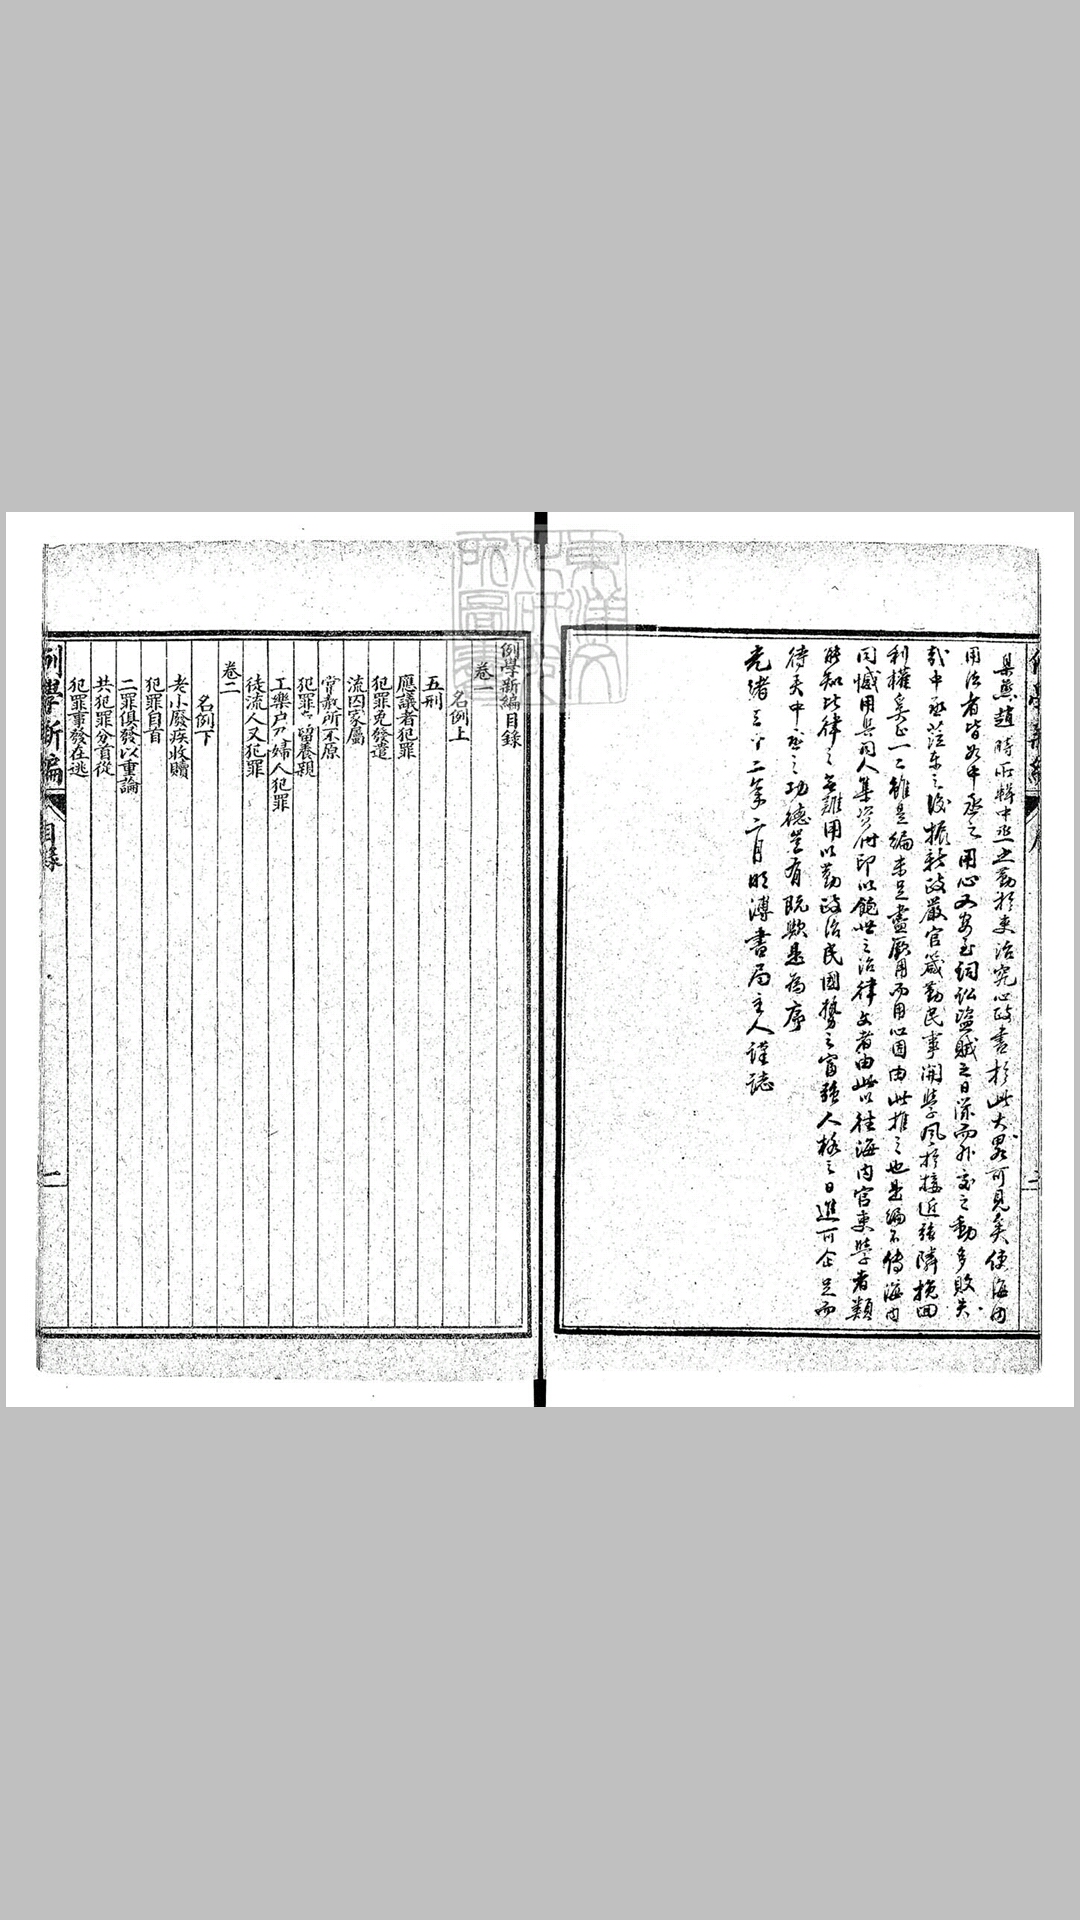 臬燕趙時所輯中丞之勤於吏治究心政書於此大畧可見矣使海內
用法者皆如中丞之用心又安至詞訟盜賊之日深而外交之動多敗失
哉中丞蒞東之後振新政嚴官箴勤民事開學風於接近強隣挽回
利權奚止一二雖是編未足盡厥用而用心固由此推之也是編不傳海內
同憾用與同人集資付印以餉世之治律文者由此以往海內官吏學者類
能知此律之無難用以勤政治民國勢之富強人格之日進可企足而
待矣中丞之功德豈有既歟是為序
光緒三十二年二月明溥書局主人謹誌
例學新編 序 二
例學新編目錄
卷一
名例上
五刑
應議者犯罪
犯罪免發遣
流囚家屬
常赦所不原
犯罪存留養親
工樂戶及婦人犯罪
徒流人又犯罪
卷二
名例下
老小廢疾收贖
犯罪自首
二罪俱發以重論
共犯罪分首從
犯罪事發在逃
例學新編 目錄 一
東洋文化研究所圖書